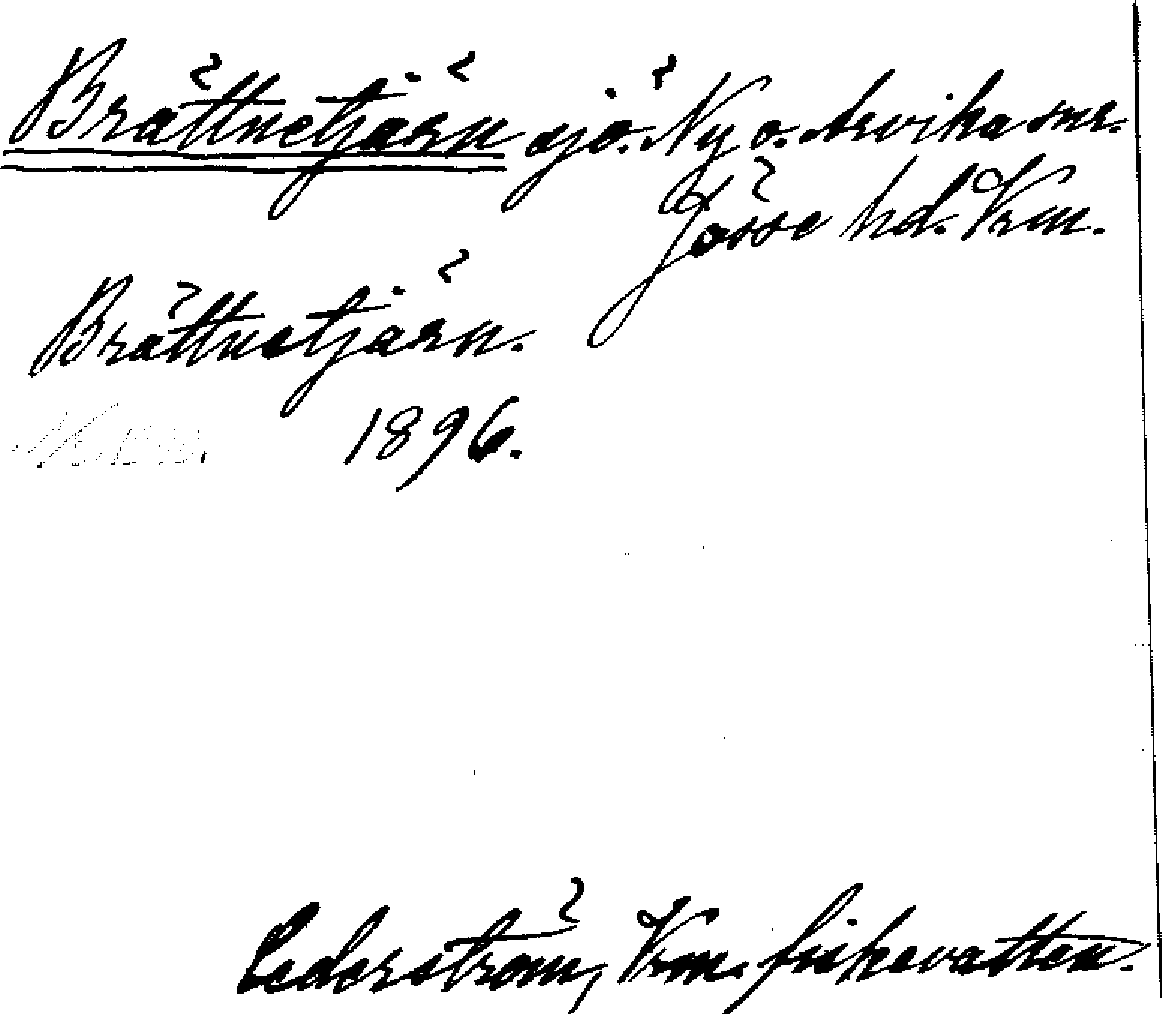 Brättnetjärn sjö. Ny o. Arvika snr.
Jösse hd. Vrm.
Brättnetjärn.
1896.
Cederström, Vrm. fiskevatten.